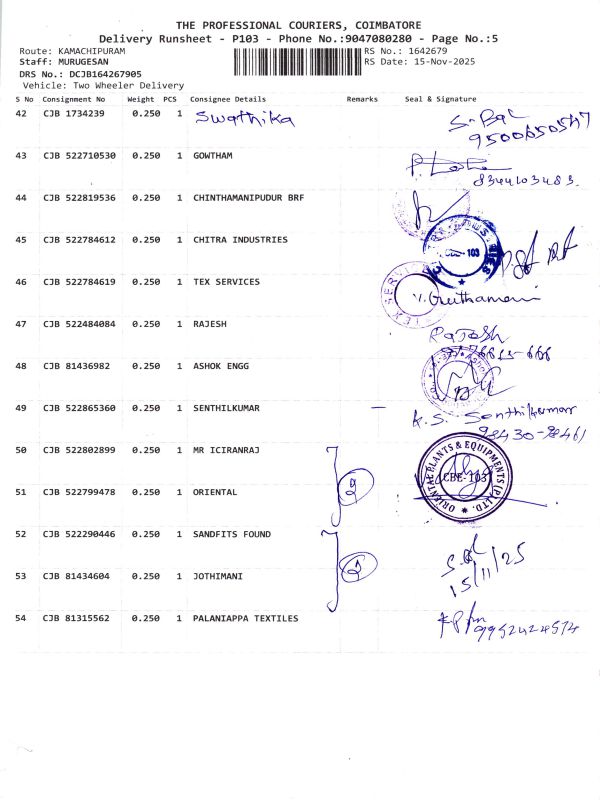 THE PROFESSIONAL COURIERS, COIMBATORE
Delivery Runsheet - P103 - Phone No.:9047080280 - Page No.:5
Route: KAMACHIPURAM RS No.: 1642679
Staff: MURUGESAN RS Date: 15-Nov-2025
DRS No.: DCJB164267905
Vehicle: Two Wheeler Delivery
S No Consignment No Weight PCS Consignee Details Remarks Seal & Signature
42 CJB 1734239 0.250 1 Swathika
43 CJB 522710530 0.250 1 GOWTHAM
8344103483.
44 CJB 522819536 0.250 1 CHINTHAMANIPUDUR BRF
45 CJB 522784612 0.250 1 CHITRA INDUSTRIES
46 CJB 522784619 0.250 1 TEX SERVICES
47 CJB 522484084 0.250 1 RAJESH Rajesh
48 CJB 81436982 0.250 1 ASHOK ENGG
49 CJB 522865360 0.250 1 SENTHILKUMAR K.S. Senthilkumar
98430-78461
50 CJB 522802899 0.250 1 MR ICIRANRAJ
ORIENTAL PLANTS & EQUIPMENTS (P) LTD.
CBE-103
51 CJB 522799478 0.250 1 ORIENTAL
52 CJB 522290446 0.250 1 SANDFITS FOUND
53 CJB 81434604 0.250 1 JOTHIMANI 15/11/25
54 CJB 81315562 0.250 1 PALANIAPPA TEXTILES